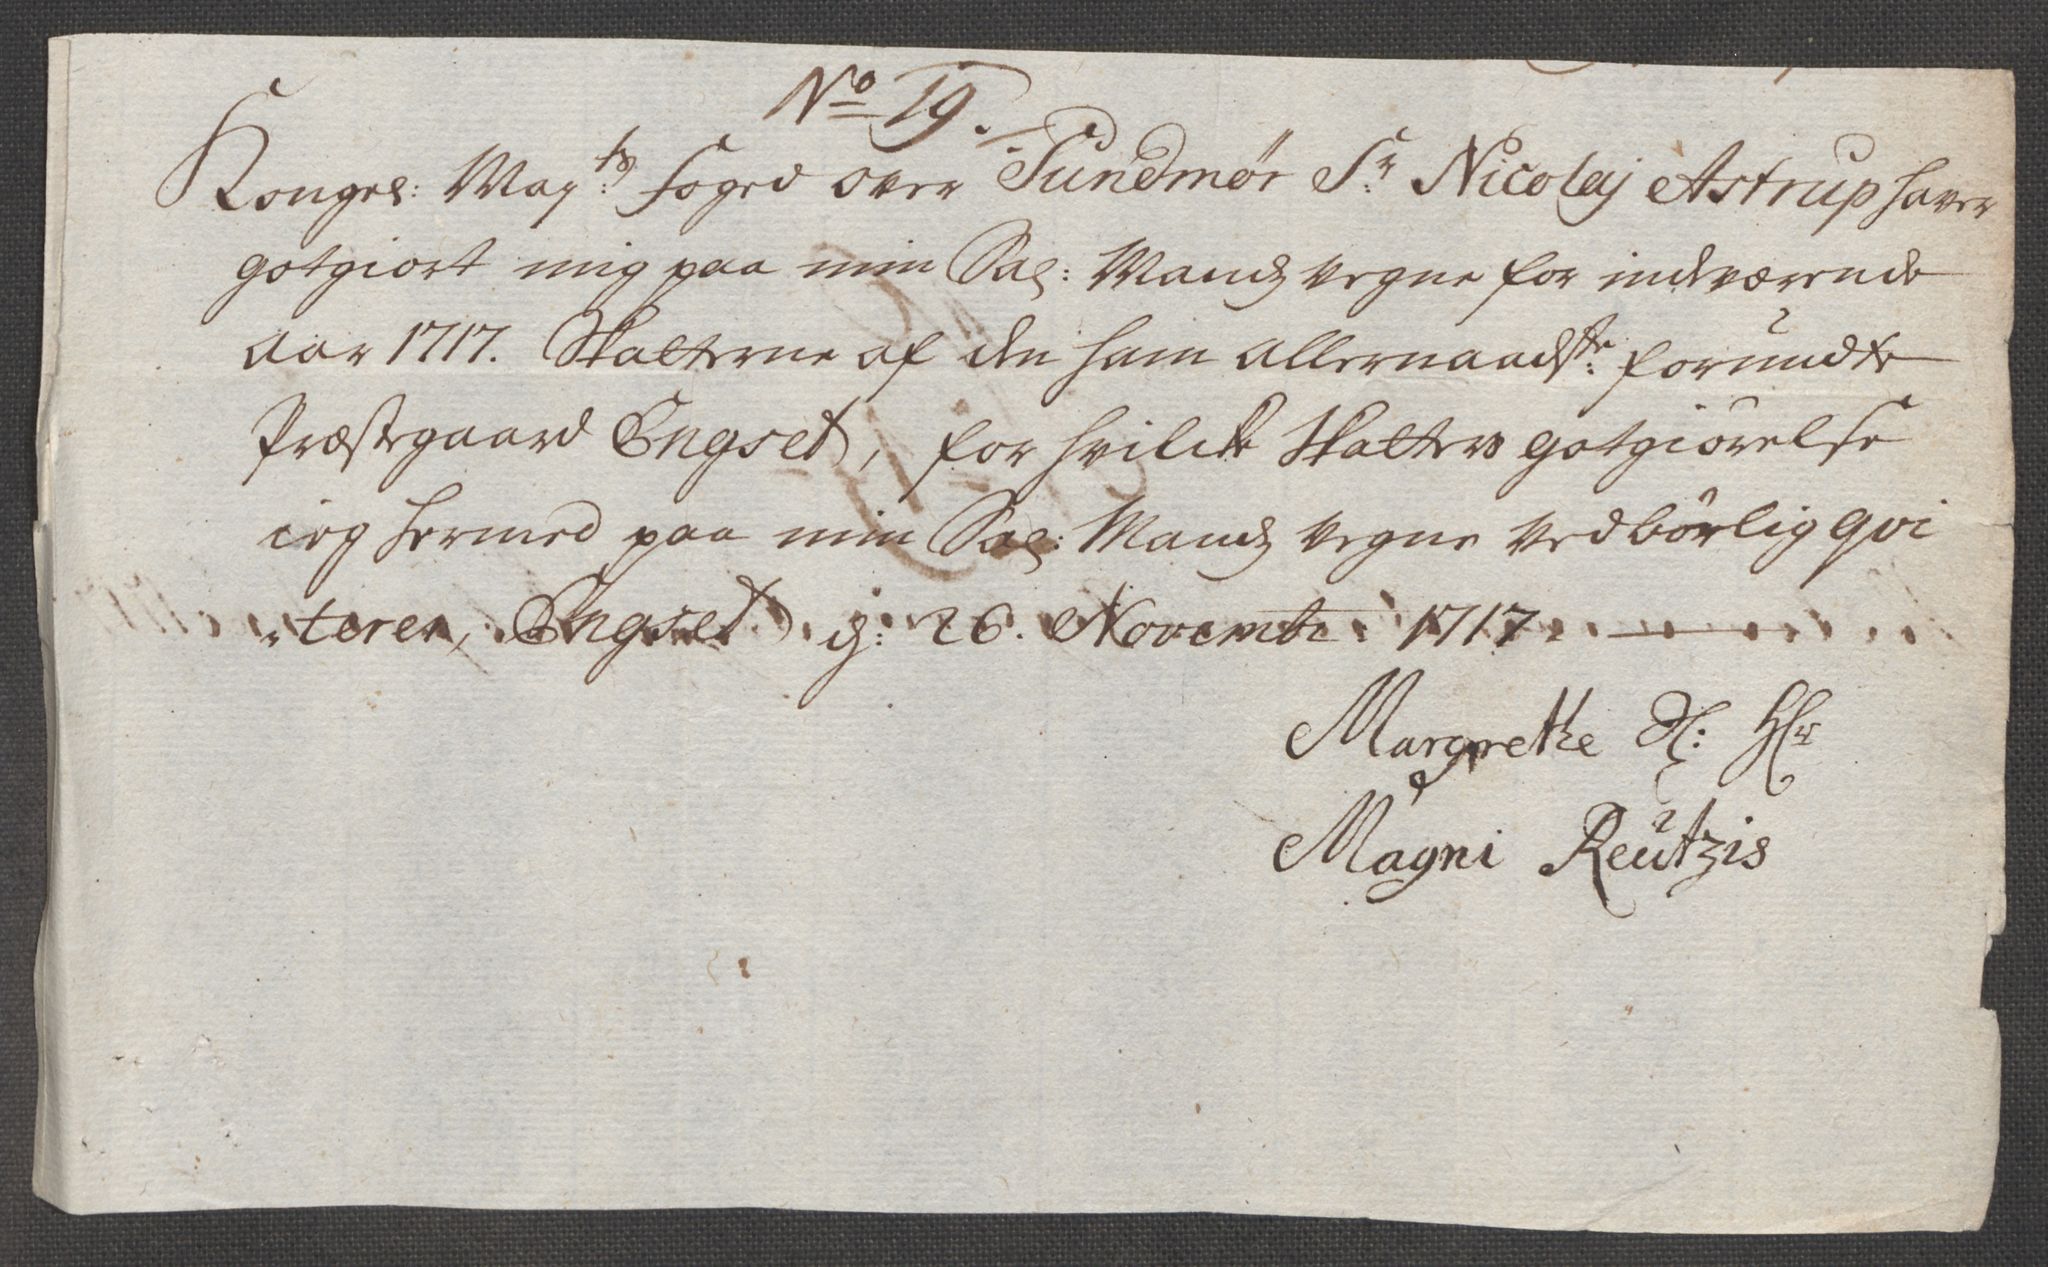 No 19.
Kongel: Mayts: foged over Sundmör Sr: Nicolaj Astrup haver
gotgiort mig paa min Sal: Mands vegne for indværende
aar 1717. Skatterne af den ham allernaadste: forundte
Præstegaard Engset, for hvilcke Skatters gotgiörelse
ieg hermed paa min Sal: Mands vegne vedbörlig qvi
-terer, Engset d: 26. Novembr: 1717.
Margrethe Sl: Hr
Magni Reützis